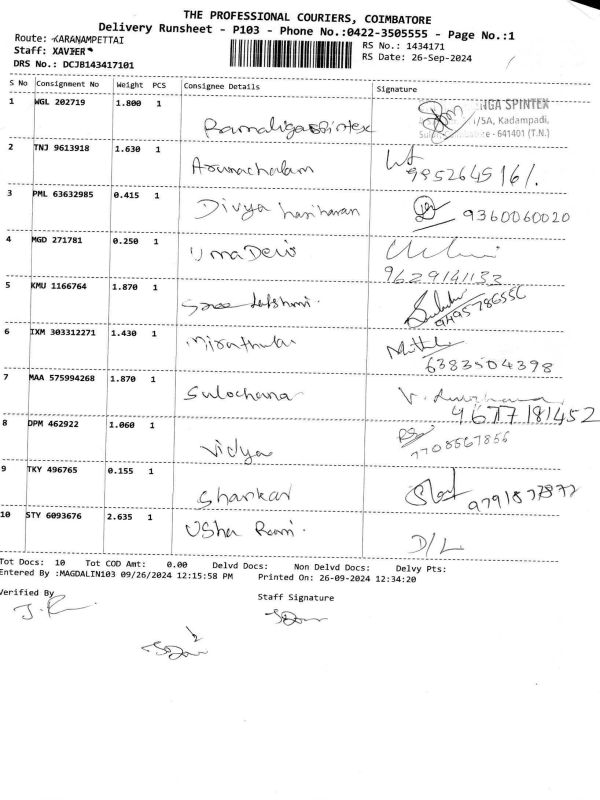 THE PROFESSIONAL COURIERS, COIMBATORE
Delivery Runsheet - P103 - Phone No.:0422-3505555 - Page No.:1
Route: KARANAMPETTAI
Staff: XAVIER
DRS No.: DCJB143417101
RS No.: 1434171
RS Date: 26-Sep-2024
S No Consignment No Weight PCS Consignee Details Signature
1 WGL 202719 1.800 1 Ramaligaspintex
NGA SPINTEX
/5A, Kadampadi,
641401 (T.N.)
2 TNJ 9613918 1.630 1 Arunachalam
3 PML 63632985 0.415 1 Divya hariharan 9360060020
4 MGD 271781 0.250 1 Uma Devi
9629141133
5 KMU 1166764 1.870 1 Sree Lakshmi.
6 IXM 303312271 1.430 1 Mirathula
6383504398
7 MAA 575994268 1.870 1 Sulochana
9677181452
8 DPM 462922 1.060 1 Vidya
7708567856
9 TKY 496765 0.155 1 Shankar
10 STY 6093676 2.635 1 USha Rani. D/L
Tot Docs: 10 Tot COD Amt: 0.00 Delvd Docs: Non Delvd Docs: Delvy Pts:
Entered By :MAGDALIN103 09/26/2024 12:15:58 PM Printed On: 26-09-2024 12:34:20
Verified By Staff Signature